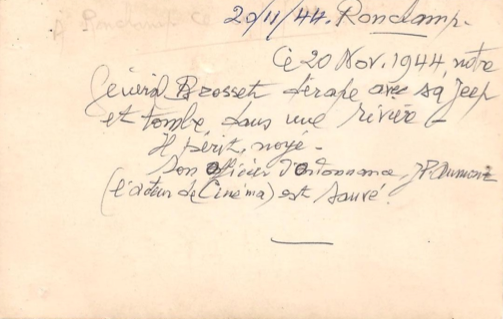 20/11/44. Ronchamp.
Ce 20 Nov. 1944, notre
Général Brosset dérape avec sa Jeep
et tombe, dans une rivière
Il périt, noyé.
Son officier d'ordonnance, JP. Aumont
(l'acteur de Cinéma) est sauvé.